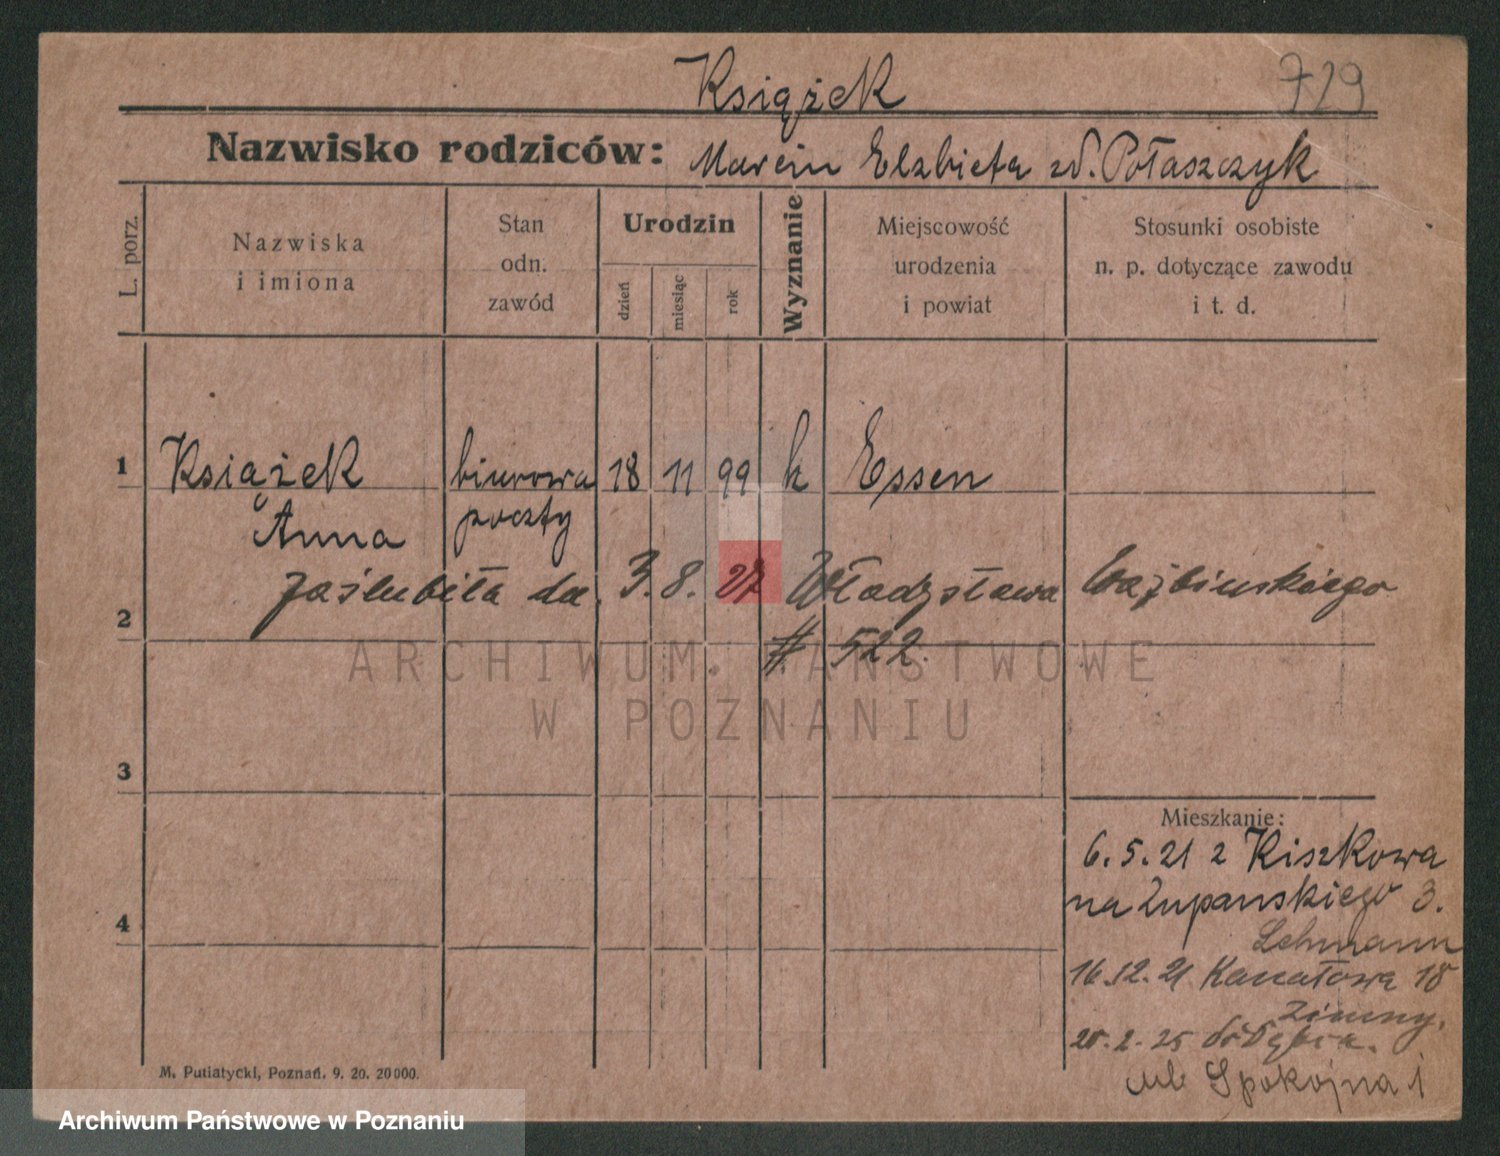 Książek
729
Nazwisko rodziców: Marcin Elżbieta zd. Połaszczyk
L. porz.
Nazwiska
i imiona
Stan
odn.
zawód
Urodzin
dzień
miesiąc
rok
Wyznanie
Miejscowość
urodzenia
i powiat
Stosunki osobiste
n. p. dotyczące zawodu
i t. d.
1 Książek biurowa 18 11 99 k Essen
Anna poczty
zaślubiła dn. 3. 8. 27 Władysława
2
# 522.
3
Mieszkanie:
6.5.21 z Kiszkowa
na Żupańskiego 3.
4
Lehmann
16.12.21 Kanałowa 18
Zimny.
20.2.25
ul. Spokojna 1
M. Putiatycki, Poznań. 9. 20. 20000.
ARCHIWUM PAŃSTWOWE
W POZNANIU
Archiwum Państwowe w Poznaniu